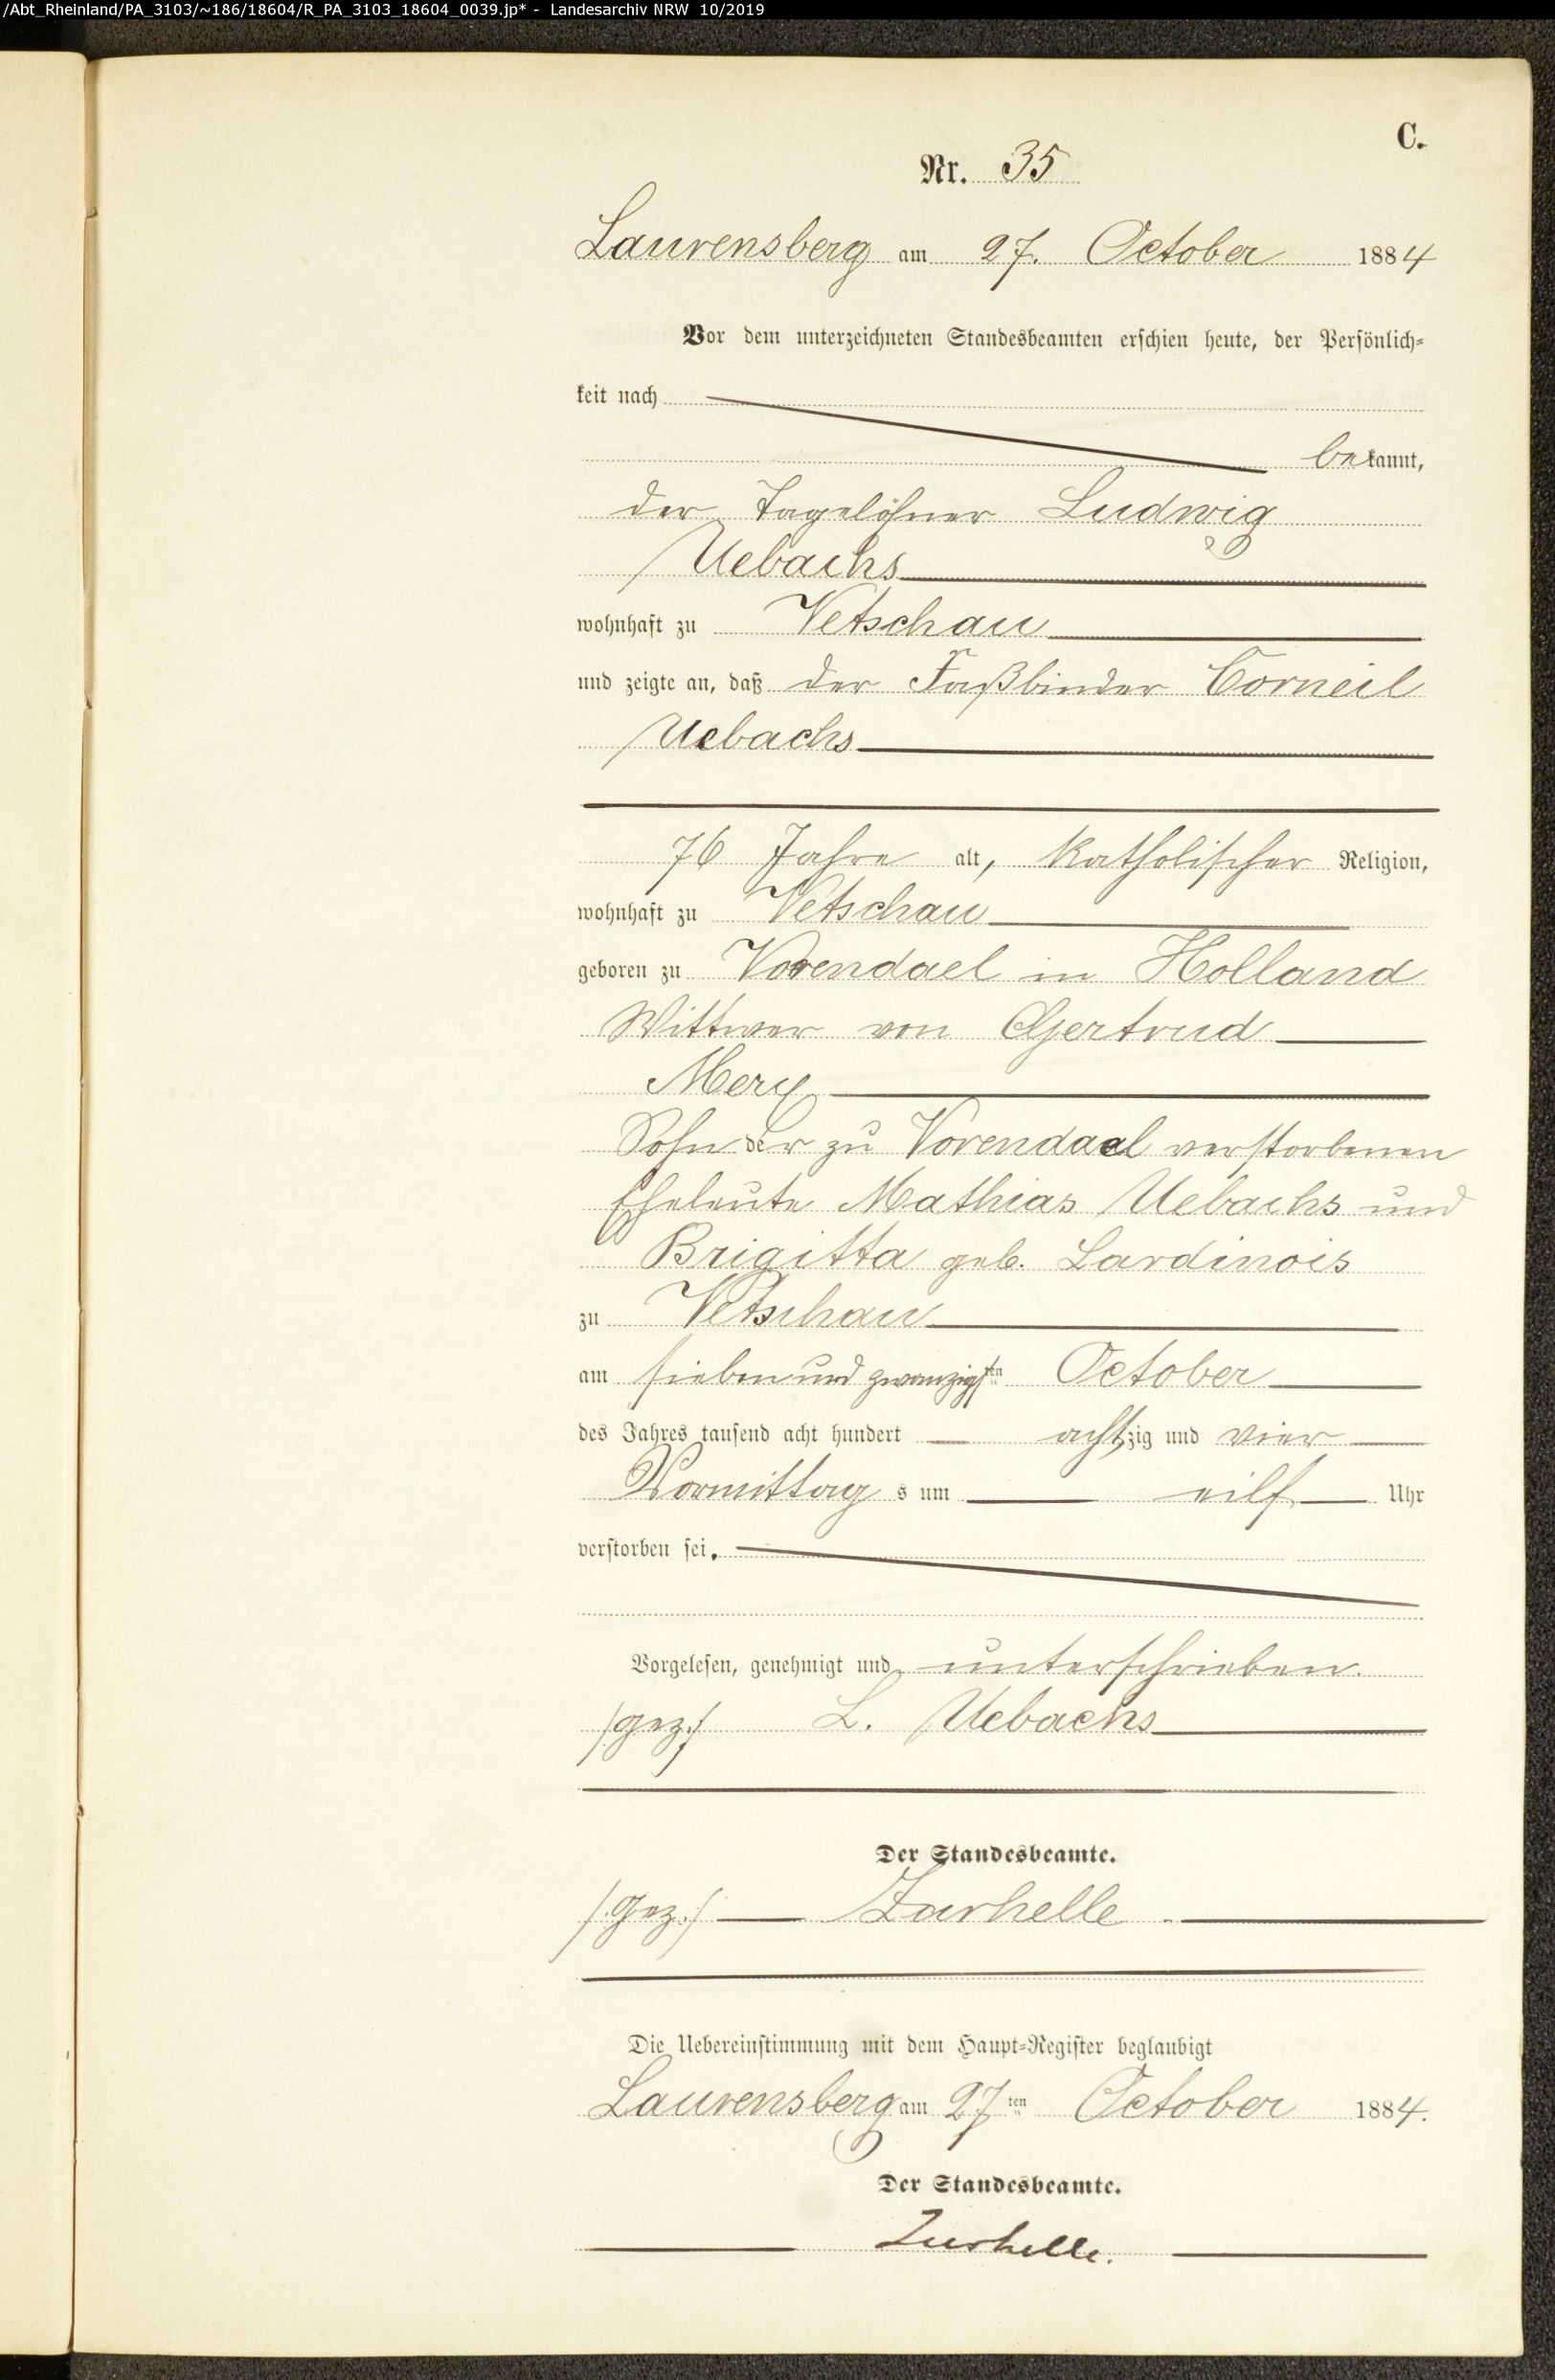 /Abt_Rheinland/PA_3103/~186/18604/R_PA_3103_18604_0039.jp* - Landesarchiv NRW 10/2019
C.
Nr. 35
Laurensberg am 27. October 1884
Vor dem unterzeichneten Standesbeamten erschien heute, der Persönlich-
keit nach
bekannt,
der Tagelöhner Ludwig
Uebachs
wohnhaft zu Vetschau
und zeigte an, daß der Faßbinder Corneil
Uebachs
76 Jahre alt, katholischer Religion,
wohnhaft zu Vetschau
geboren zu Vorendael in Holland
Wittwer von Gertrud
Merx
Sohn der zu Vorendael verstorbenen
Eheleute Mathias Uebachs und
Brigitta geb. Lardinois
zu Vetschau
am sieben und zwanzigsten October
des Jahres tausend acht hundert achtzig und vier
Vormittags um eilf Uhr
verstorben sei.
Vorgelesen, genehmigt und unterschrieben.
/gez./ L. Uebachs
Der Standesbeamte.
/gez./ Zurhelle
Die Uebereinstimmung mit dem Haupt-Register beglaubigt
Laurensberg am 27ten October 1884.
Der Standesbeamte.
Zurhelle.